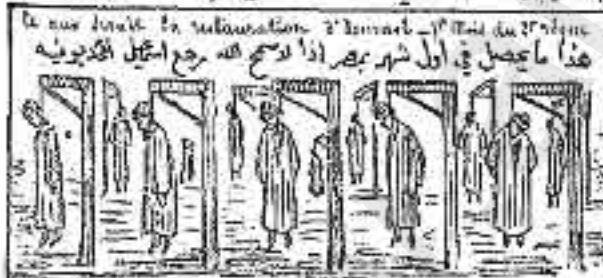 Ce que serait la restauration d'Ismaïl – 1er Mois du 2e règne
هذا ما يحصل في اول شهر بمصر اذا لا سمح الله رجع اسمعيل الخديويه